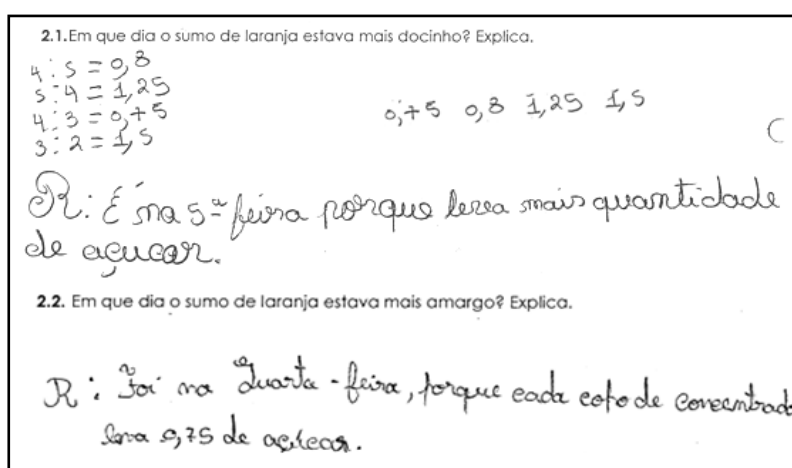 2.1.Em que dia o sumo de laranja estava mais docinho? Explica.
4 : 5 = 0,8
5 : 4 = 1,25
4 : 3 = 0,75
3 : 2 = 1,5
0,75 0,8 1,25 1,5
C
R: É na 5ª feira porque levea mais quantidade
de açucar.
2.2. Em que dia o sumo de laranja estava mais amargo? Explica.
R: Foi na Quarta-feira, porque cada copo de concentrado
leva 0,75 de açucar.